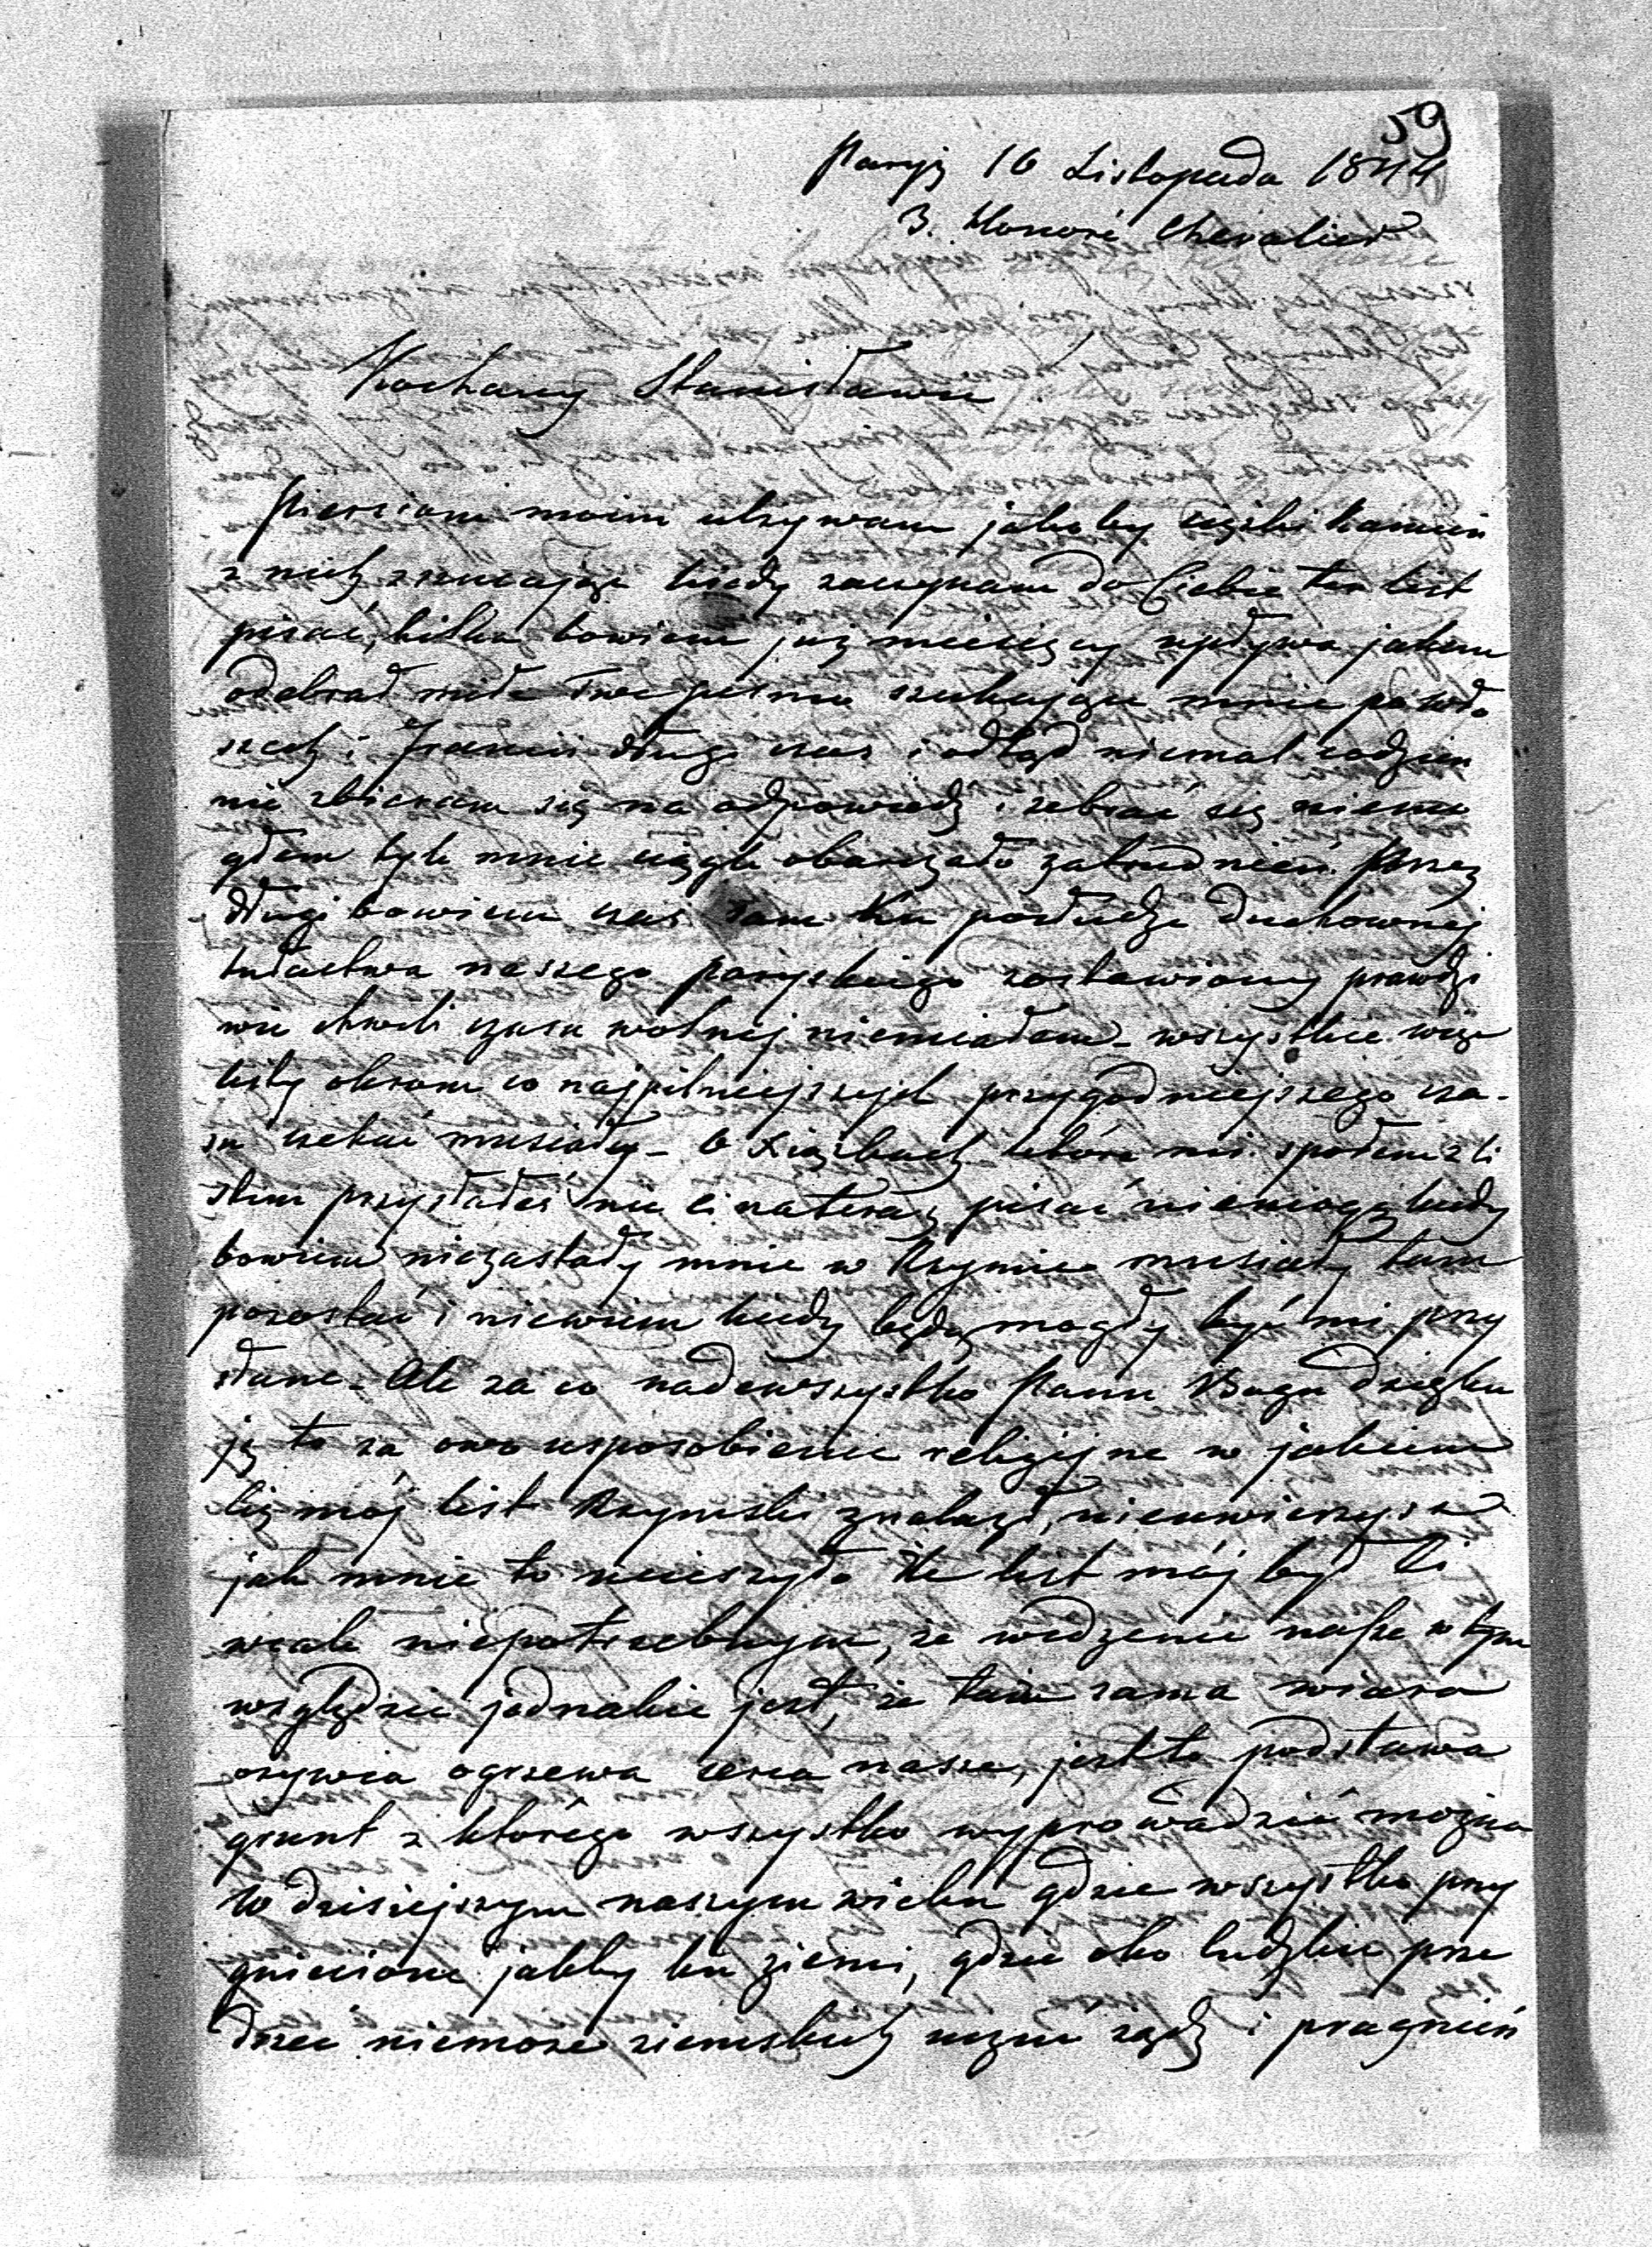 59
Paryż 16 Listopada 1844
3. Honoré Chevalier
Kochany Stanisławie
Piersiom moim ulzywam jakoby ciężki kamień
z nich zrzucając kiedy zaczynam do Ciebie ten list
pisać, kilka bowiem już miesięcy upływa jakem
odebrał miłe Twe pismo szukające mnie po Wło
szech i Francii długi czas i odtąd niemal codzien
nie zbieram się na odpowiedź i zebrać się niemo
głem tyle mnie ciągle obarczało zatrudnień. Przez
długi bowiem czas sam ku posłudze duchownej
tułactwa naszego paryskiego zostawiony prawdzi
wie chwili czasu wolnej niemiałem - wszystkie więc
listy okrom co najpilniejszych przygodniejszego cza-
su czekać musiały - O Książkach które mi spółem z li
stem przysłałeś nic Ci nateraz pisać niemogę kiedy
bowiem niezastały mnie w Rzymie musiały tam
pozostać i niewiem kiedy będą mogły być mi przy
słane - Ale za co nadewszystko Panu Bogu dzięku
ję to za owo usposobienie religijne w jakiem
Cię mój list Rzymski znalazł, nieuwierzysz
jak mnie to ucieszyło że list mój był Ci
wcale niepotrzebnym, że widzenie nasze w tym
względzie jednakie jest, że taż sama wiara
ożywia ogrzewa serca nasze, jest to podstawa
grunt z którego wszystko wyprowadzić można
W dzisiejszym naszym wieku gdzie wszystko przy
gniecione jakby ku ziemi, gdzie oko ludzkie prze
drzeć niemoże ziemskich uczuć żądz i pragnień